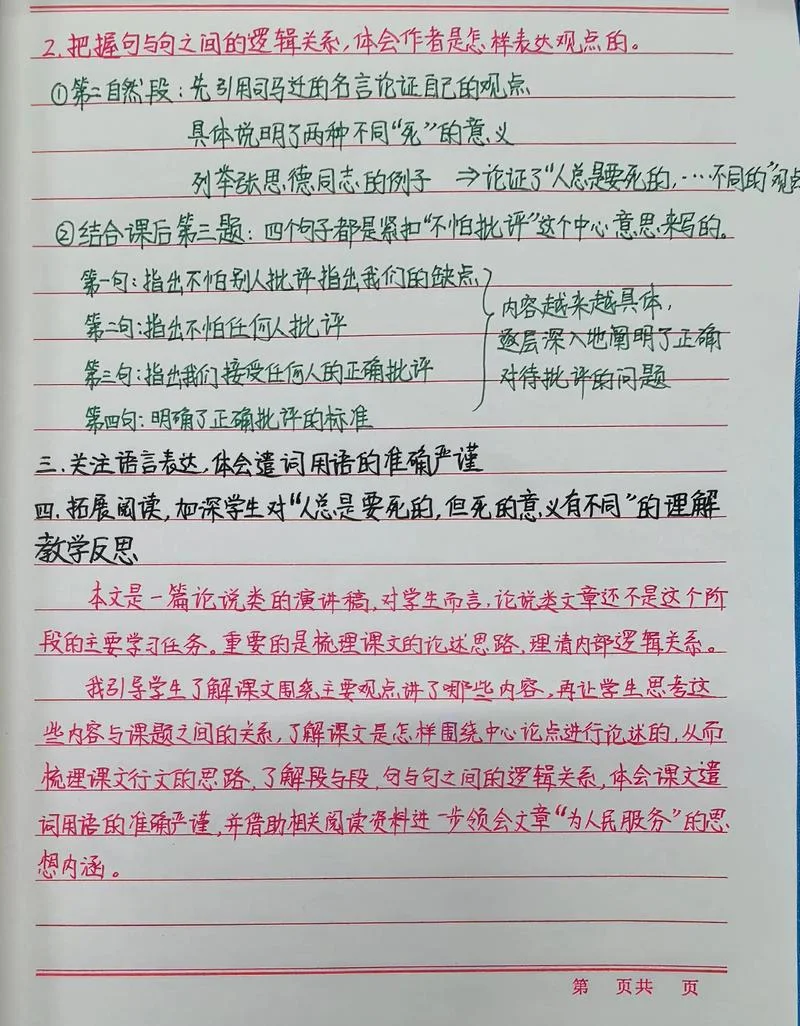 2.把握句与句之间的逻辑关系,体会作者是怎样表达观点的。
①第二自然段:先引用司马迁的名言论证自己的观点
具体说明了两种不同“死”的意义
列举张思德同志的例子 ⇒论证了“人总是要死的,…不同的”观点
②结合课后第三题:四个句子都是紧扣“不怕批评”这个中心意思来写的。
第一句:指出不怕别人批评指出我们的缺点
第二句:指出不怕任何人批评
第三句:指出我们接受任何人的正确批评
第四句:明确了正确批评的标准
内容越来越具体,
逐层深入地阐明了正确
对待批评的问题
三.关注语言表达,体会遣词用语的准确严谨
四.拓展阅读,加深学生对“人总是要死的,但死的意义有不同”的理解
教学反思
本文是一篇论说类的演讲稿,对学生而言,论说类文章还不是这个阶
段的主要学习任务。重要的是梳理课文的论述思路,理清内部逻辑关系。
我引导学生了解课文围绕主要观点讲了哪些内容,再让学生思考这
些内容与课题之间的关系,了解课文是怎样围绕中心论点进行论述的,从而
梳理课文行文的思路,了解段与段,句与句之间的逻辑关系,体会课文遣
词用语的准确严谨,并借助相关阅读资料进一步领会文章“为人民服务”的思
想内涵。
第 页共 页